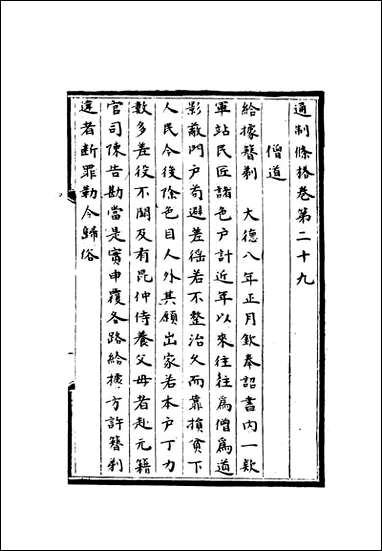 通制條格卷第二十九
僧道
給據簪剃　大德八年正月欽奉詔書內一欵
軍站民匠諸色戶計近年以來往往爲僧爲道
影蔽門戶苟避差徭若不整治久而靠損貧下
人民今後除色目人外其願出家若本戶丁力
數多差役不闕及有昆仲侍養父母者赴元籍
官司陳告勘當是實申覆各路給據方許簪剃
違者断罪勒令歸俗